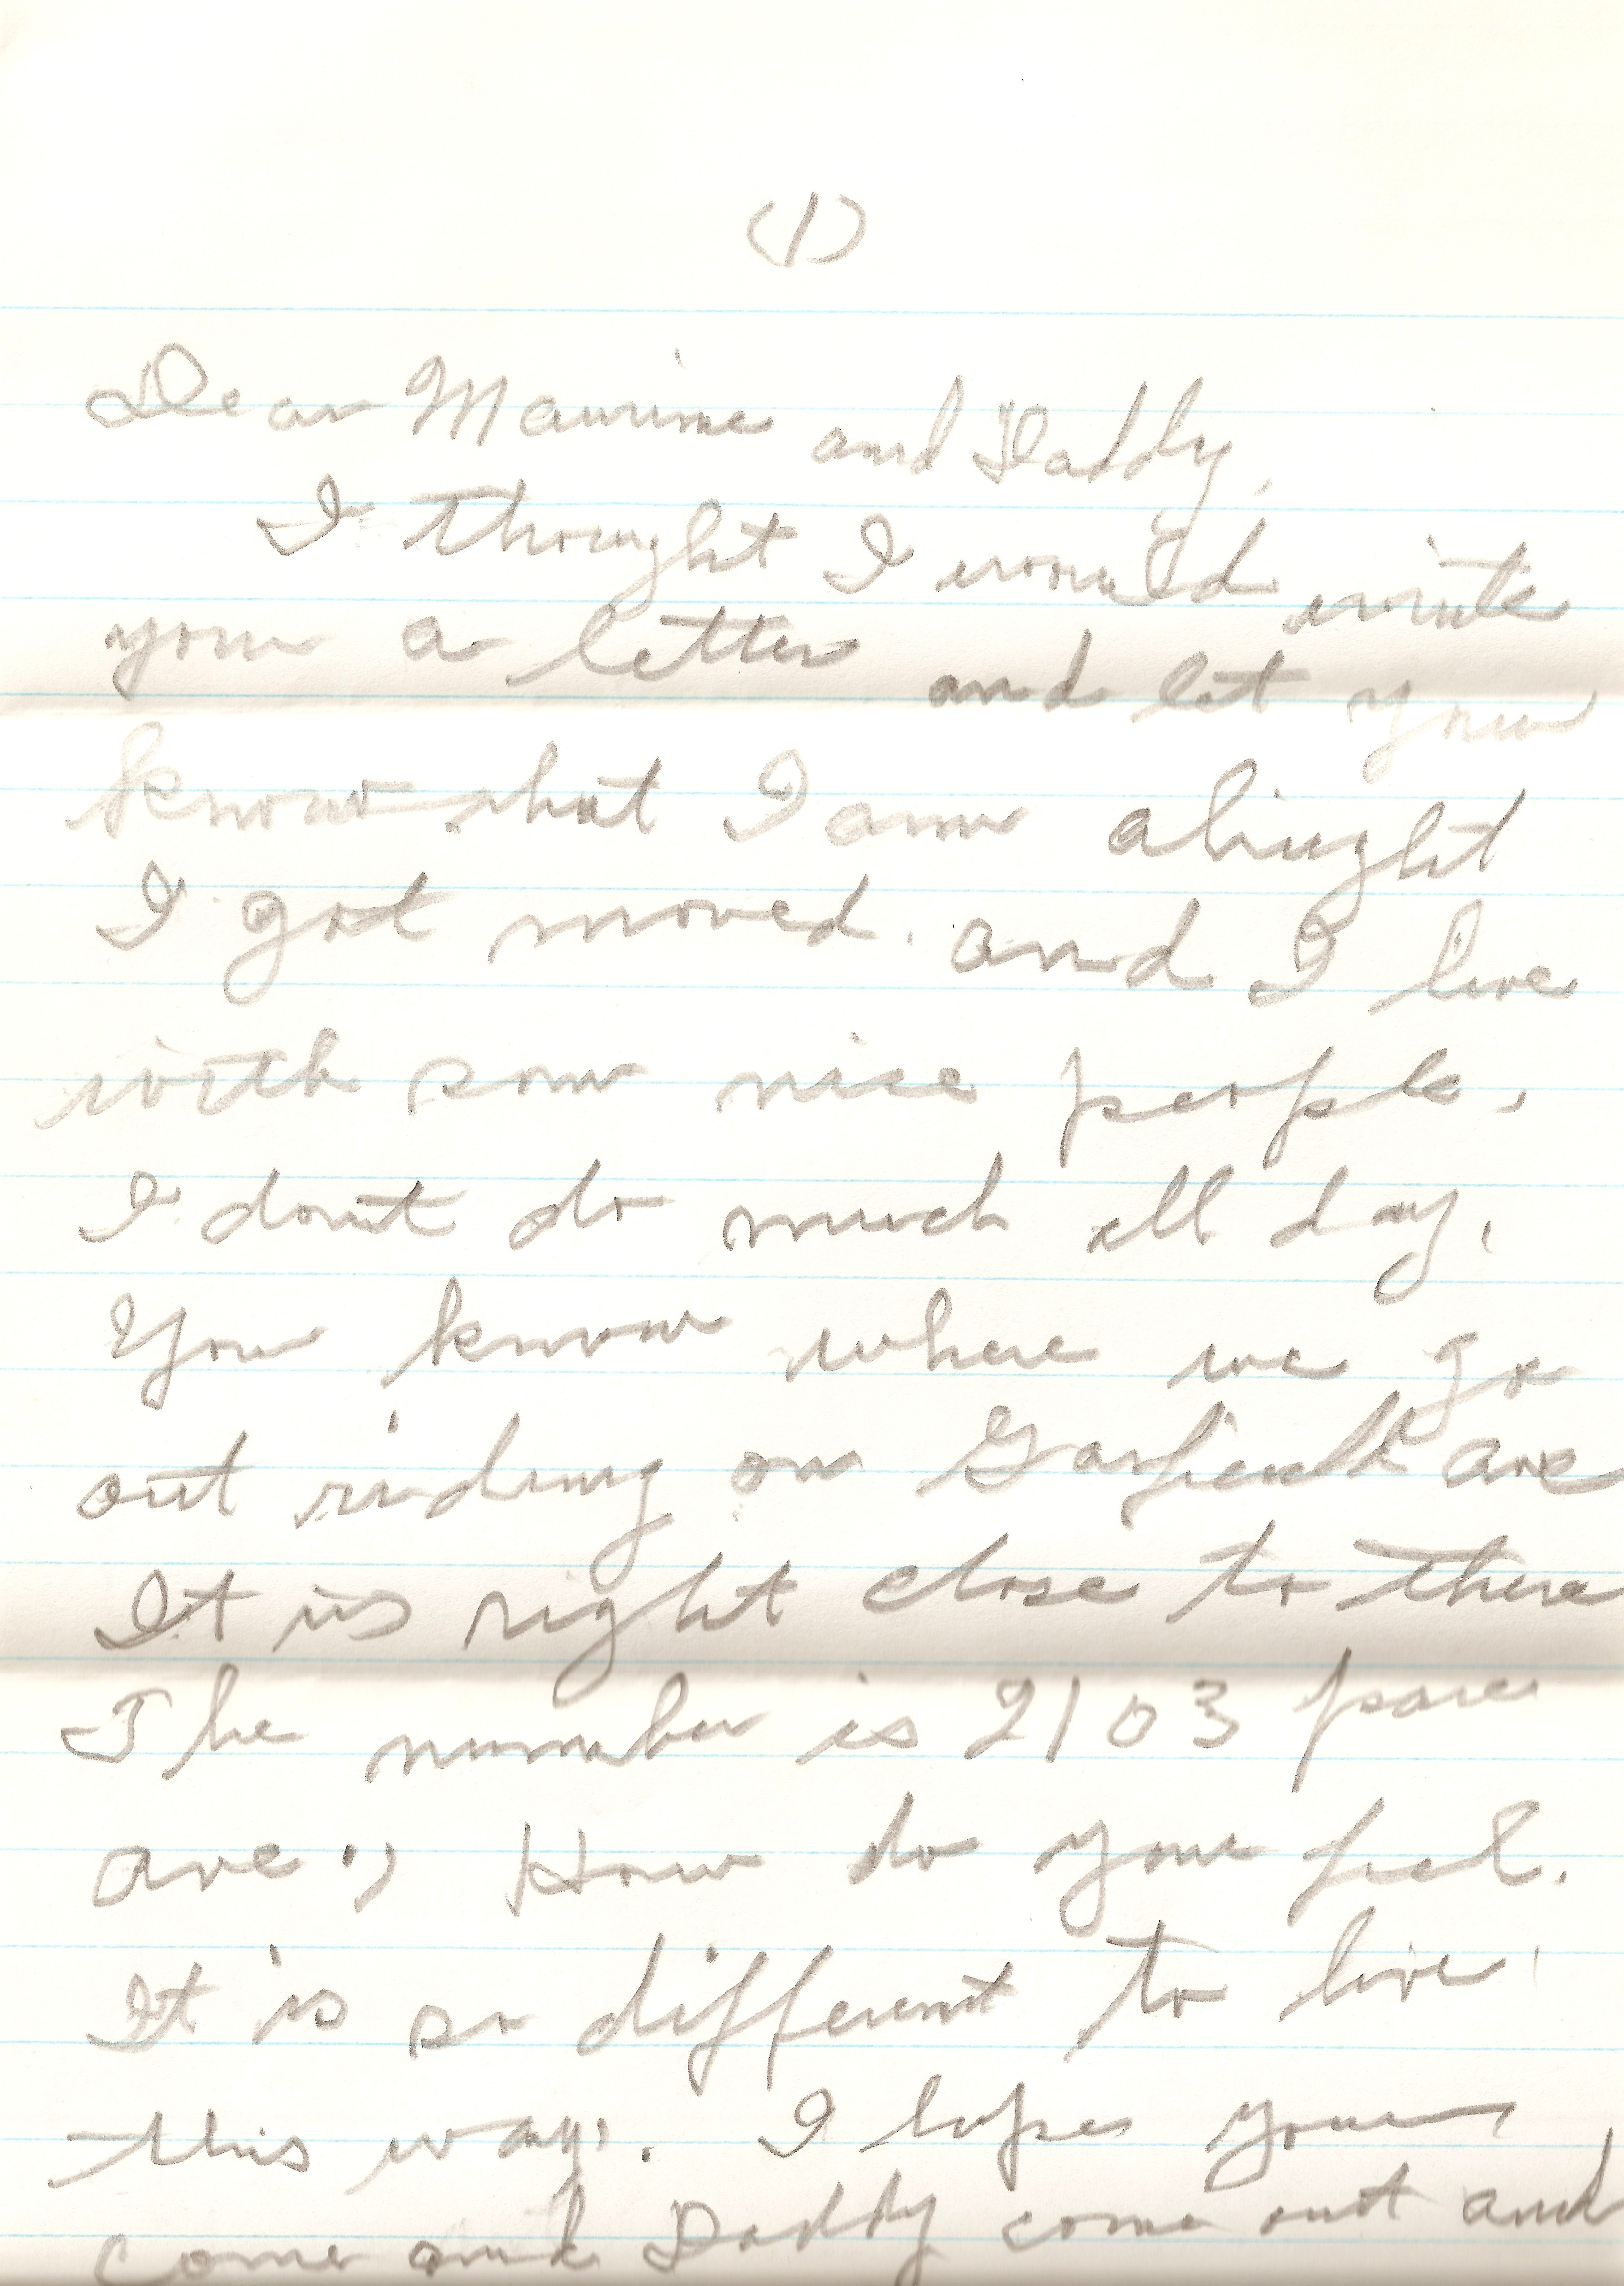 (1)
Dear Maurine and Daddy,
I thought I would write
you a letter and let you
know that I am alright
I got moved. and I live
with some nice people.
I don't do much all day.
You know where we go
out riding on Garfield ave
It is right close to there
The number is 2103
ave., How do you feel.
It is so different to live
this way. I hope you
come and Daddy come out and